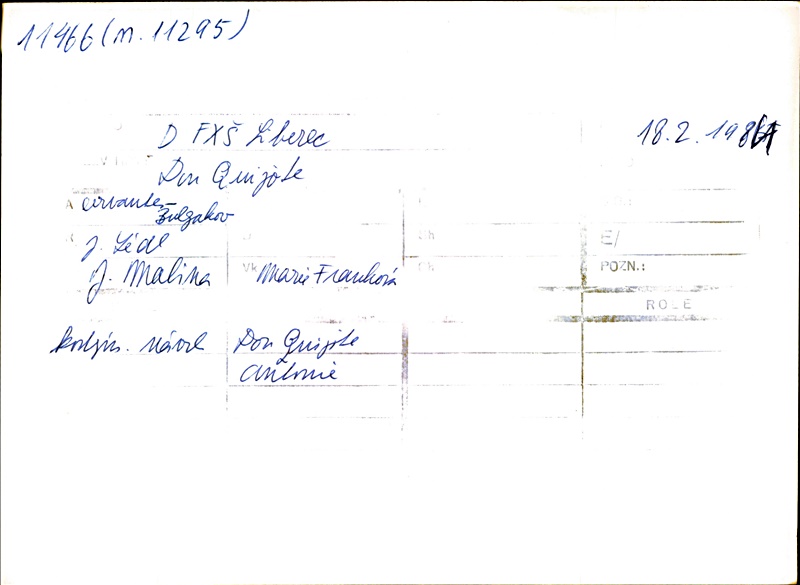 11466 (n. 11295)
D FXŠ Liberec
18.2.198
Don Quijote
A Cervantes-
Bulgakov
J. Lédl
E/
J. Malina
Vk Marie Franková
POZN.:
ROLE
kostým. návrh Don Quijote
Antonie